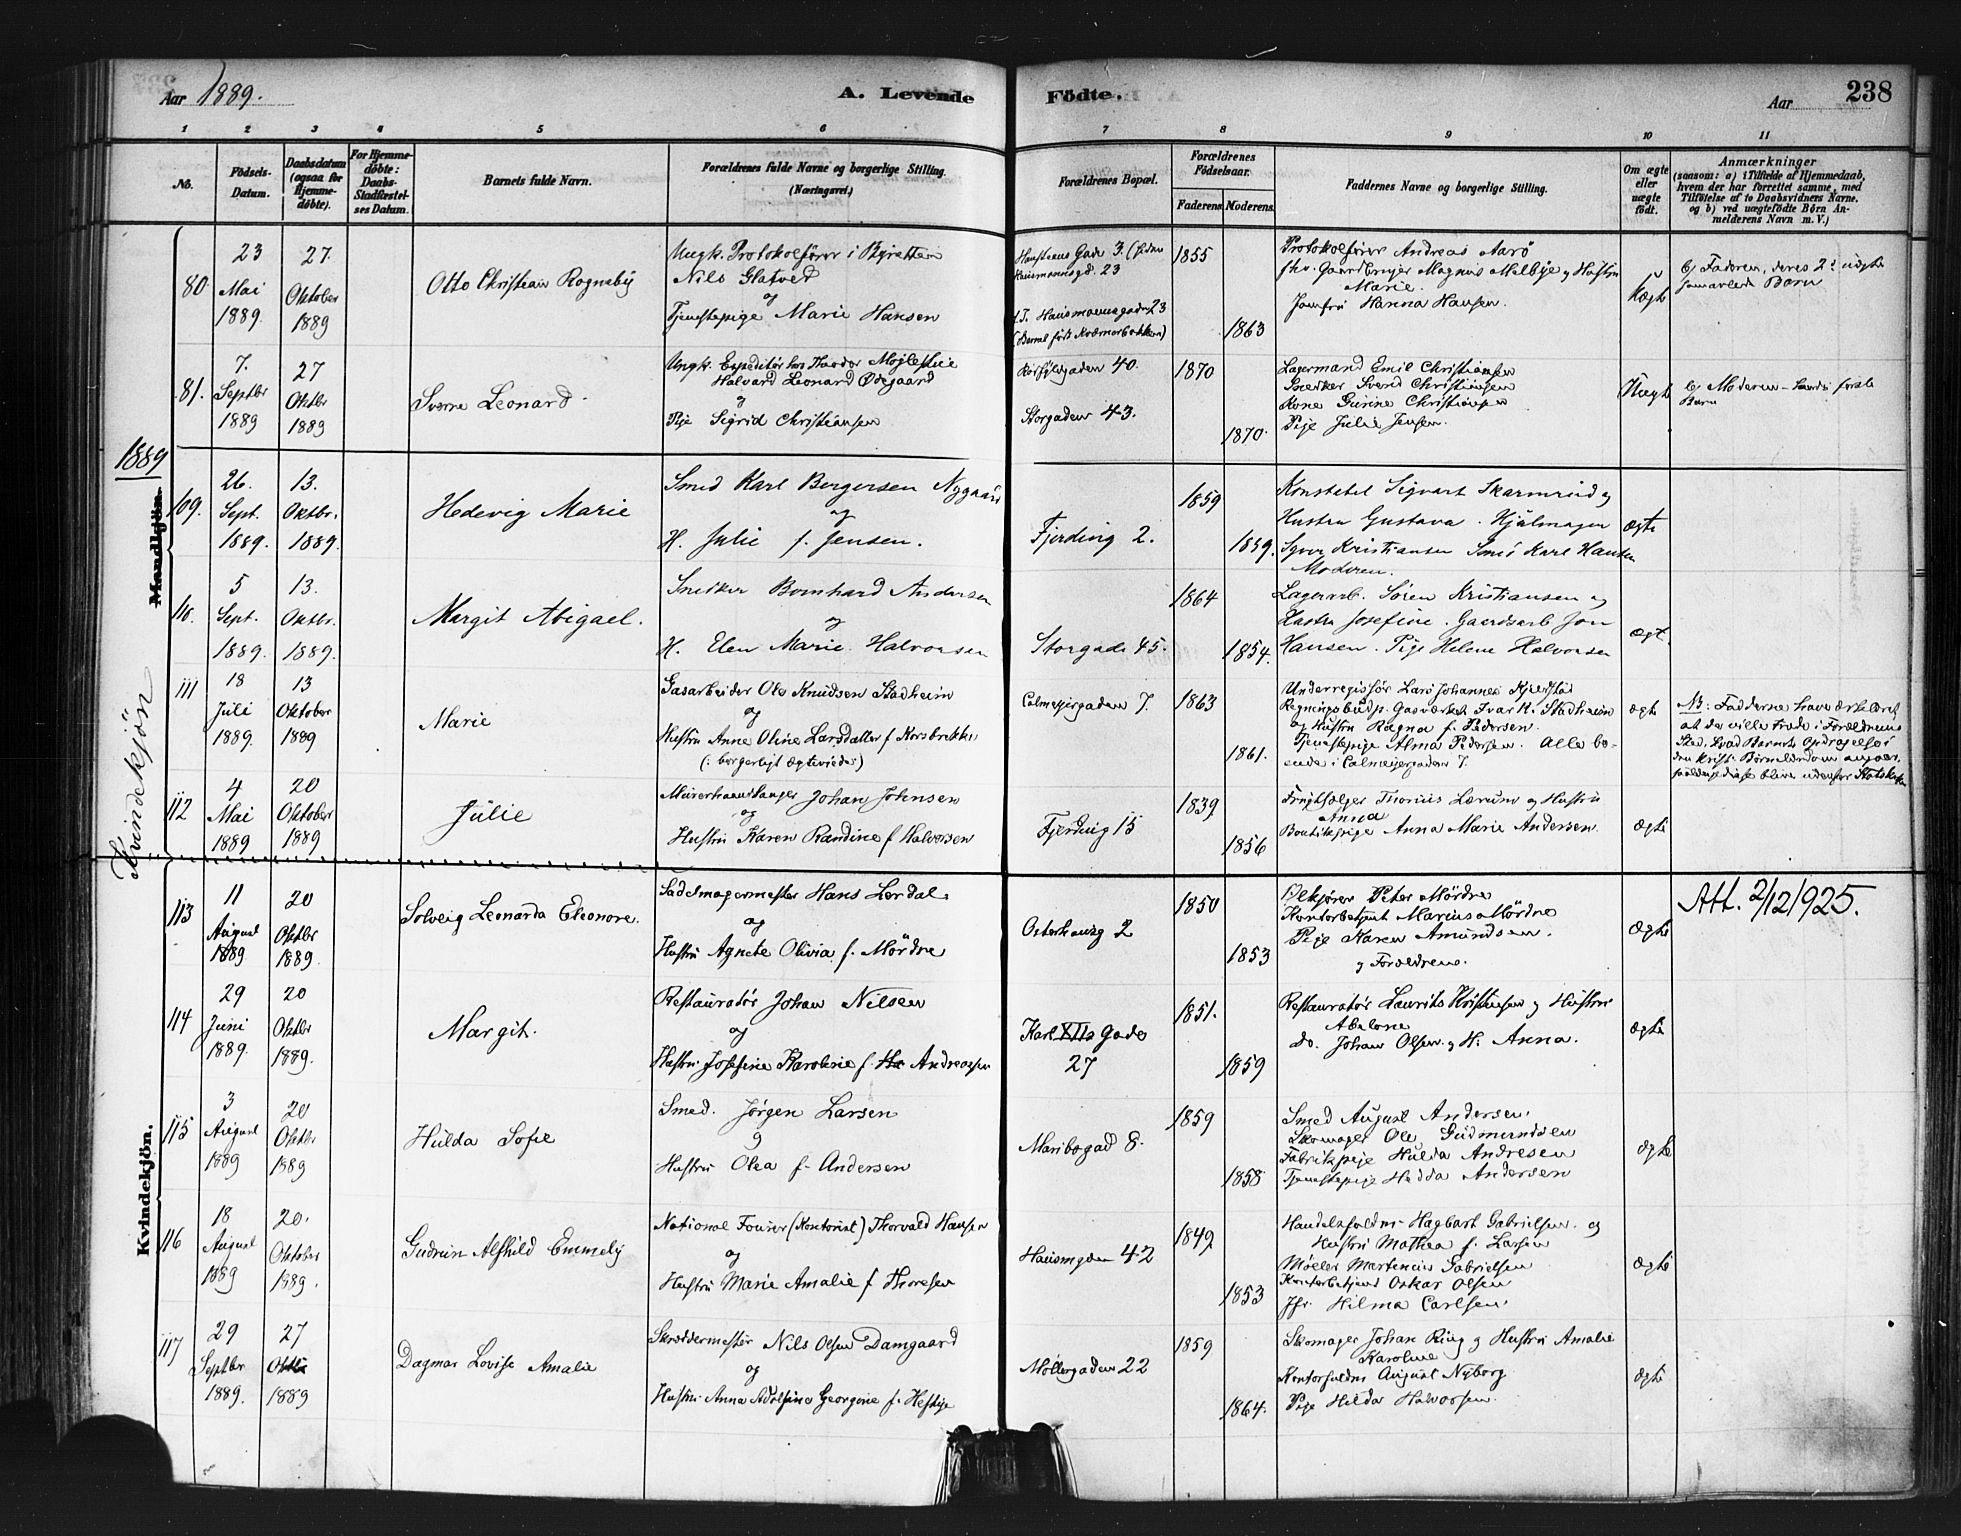 Aar 1889.
A. Levende Födte.
Aar
238
1 2 3 4 5 6 7 8 9 10 11
No.
Födsels-Datum.
Daabsdatum (ogsaa for Hjemmedöbte).
For Hjemmedöbte: Daabs-Stadfæstelses Datum.
Barnets fulde Navn.
Forældrenes fulde Navne og borgerlige Stilling. (Næringsvei.)
Forældrenes Bopæl.
Forældrenes Födselsaar.
Faderens. Moderens.
Faddernes Navne og borgerlige Stilling.
Om ægte eller uægte født.
Anmærkninger
(saasom: a) i Tilfælde af Hjemmedaab, hvem der har forrettet samme, med Tilföielse af to Daabsvidners Navne. og b) ved uægtefödte Børn Anmelderens Navn m. V.)
1889
Mandkjön.
Kvindekjön
Kvindekjön.
80
23 Mai 1889.
27. Oktober 1889
Otto Christian Rogneby
Ungk. Protokolfører i Byretten
Nils Glatved
og
Tjenestepige Marie Hansen
Hausmannsgd. 23
Hausmannsgaden 23
1855
1863
Protokolfører Andreas Aarö
Magnus Melbye og Hustru
Marie.
Jomfru Hanna Hansen.
Uægte
b) Faderen, deres 2det uægte
Barn
81.
7. Septbr 1889
27 Oktbr 1889
Sverre Leonard
Ungk. Expeditör hos
Halvard Leonard Ødegaard
og
Pige Sigrid Christiansen
40.
Storgaden 43.
1870
1870.
Lagermand Emil Christiansen
Snedker Sverd Christiansen
Kone Gurine Christiansen
Pige Julie Jensen.
Uægte
b) Moderen – første
Barn
109.
26. Sept. 1889.
13. Oktbr. 1889.
Hedevig Marie
Smed Karl Bergersen Nygaard
og
H. Julie f. Jensen.
Fjerding 2.
1859
1859.
Konstabel Sigvart
Hustru Gustava. Hjulmager
Kristiansen Smed Karl Hansen
Moderen.
ægte
110.
5 Sept. 1889.
13. Oktbr. 1889.
Margit Abigael.
Snedker Bernhard Andersen
og
H. Elen Marie Halvorsen
Storgade 45.
1864
1854.
Lagerarb. Sören Kristiansen og
Hustru Josefine. Gaardsarb Jon
Hansen. Pige Helene Halvorsen
ægt.
111
18 Juli 1889.
13 Oktober 1889
Marie
Gasarbeider Ole Knudsen Stadheim
og
Hustru Anne Oline Larsdatter f.
(: borgerligt ægteviede:)
Calmeyergaden 7.
1863
1861.
Underregissör Lars Johannes
Regningsbudp. Gasværket Ivar K. Stadheim
og Hustru Ragna f. Pedersen.
Tjenestepige Alma Pedersen. Alle bo-
ende i Calmeyergaden 7.
ægte
NB: Fadderne have erklæret
at de ville træde i Forældrenes
Sted, hvad Barnets Opdragelse i
den krist. Börnelærdom angaar,
udenfor Statskirken
112
4 Mai 1889
20 Oktober 1889
Julie
Murerhaandlanger Johan Johnsen
og
Hustru Karen Randine f. Halvorsen
Fjerding 15
1839
1856
Thorius Lærum og Hustru
Anna
Boutikpige Anna Marie Andersen.
ægte
113
11 August 1889
20 Oktbr 1889.
Solveig Leonarda Eleonore.
Sadelmagermester Hans Lerdal
og
Hustru Agnete Olivia f. Mördre
Osterhausg 2
1850
1853
Ølkjører Peter Mördre
Kontorbetjent Marius Mördre
Pige Karen Amundsen.
og Forældrene.
ægte
Att. 2/12 1925.
114
29 Juni 1889.
20 Oktbr 1889.
Margit.
Restauratör Johan Nilsen
og
Hustru Josefine Karoline f. Andreassen
Karl XIIs Gade
27
1851.
1859
Restauratör Laurits Kristensen og Hustru
Abelone
do. Johan Olsen og H. Anna.
ægte
115
3 August 1889
20 Oktbr 1889
Hulda Sofie
Smed. Jörgen Larsen
og
Hustru Olea f. Andersen
Maribogad 8.
1859
1858
Smed August Andersen.
Skomager Ole Gudmundsen
Fabrikpige Hulda Andresen
Tjenestepige Hedda Andersen
ægte
116
18 August 1889
20. Oktober 1889.
Gudrun Alfhild Emmely
National Fourer (Kontorist) Thorvald Hansen
og
Hustru Marie Amalie f. Thoresen
Hausmgden 42
1849
1853
Handelsfuldm. Hagbart Gabrielsen. og
Hustru Mathea f. Larsen
Möller Martenius Gabrielsen
Kontorbetjent Oskar Olsen
Jfr. Hilma Carlsen.
ægte
117
29 Septbr 1889.
27 Oktbr 1889
Dagmar Lovise Amalie
Skræddermester Nils Olsen Damgaard
og
Hustru Anna Adolfine Georgine f. Heftye
Möllergaden 22
1859
1864.
Skomager Johan Ring og Hustru Amalie
Karoline
Kontorfuldm August Nyborg
Pige Hilda Halvorsen.
ægte